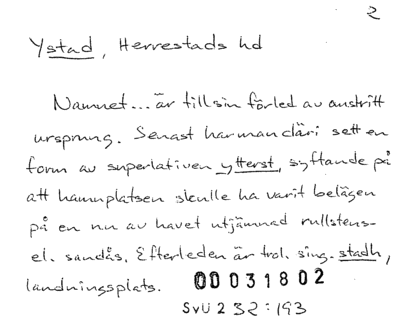 2
Ystad, Herrestads hd
Namnet... är till sin förled av omstritt
ursprung. Senast har man däri sett en
form av superlativen ytterst, syftande på
att hamnplatsen skulle ha varit belägen
på en nu av havet utjämnad rullstens-
el. sandås. Efterleden är trol. sing. stadh,
landningsplats.
00031802
SvU 232:193